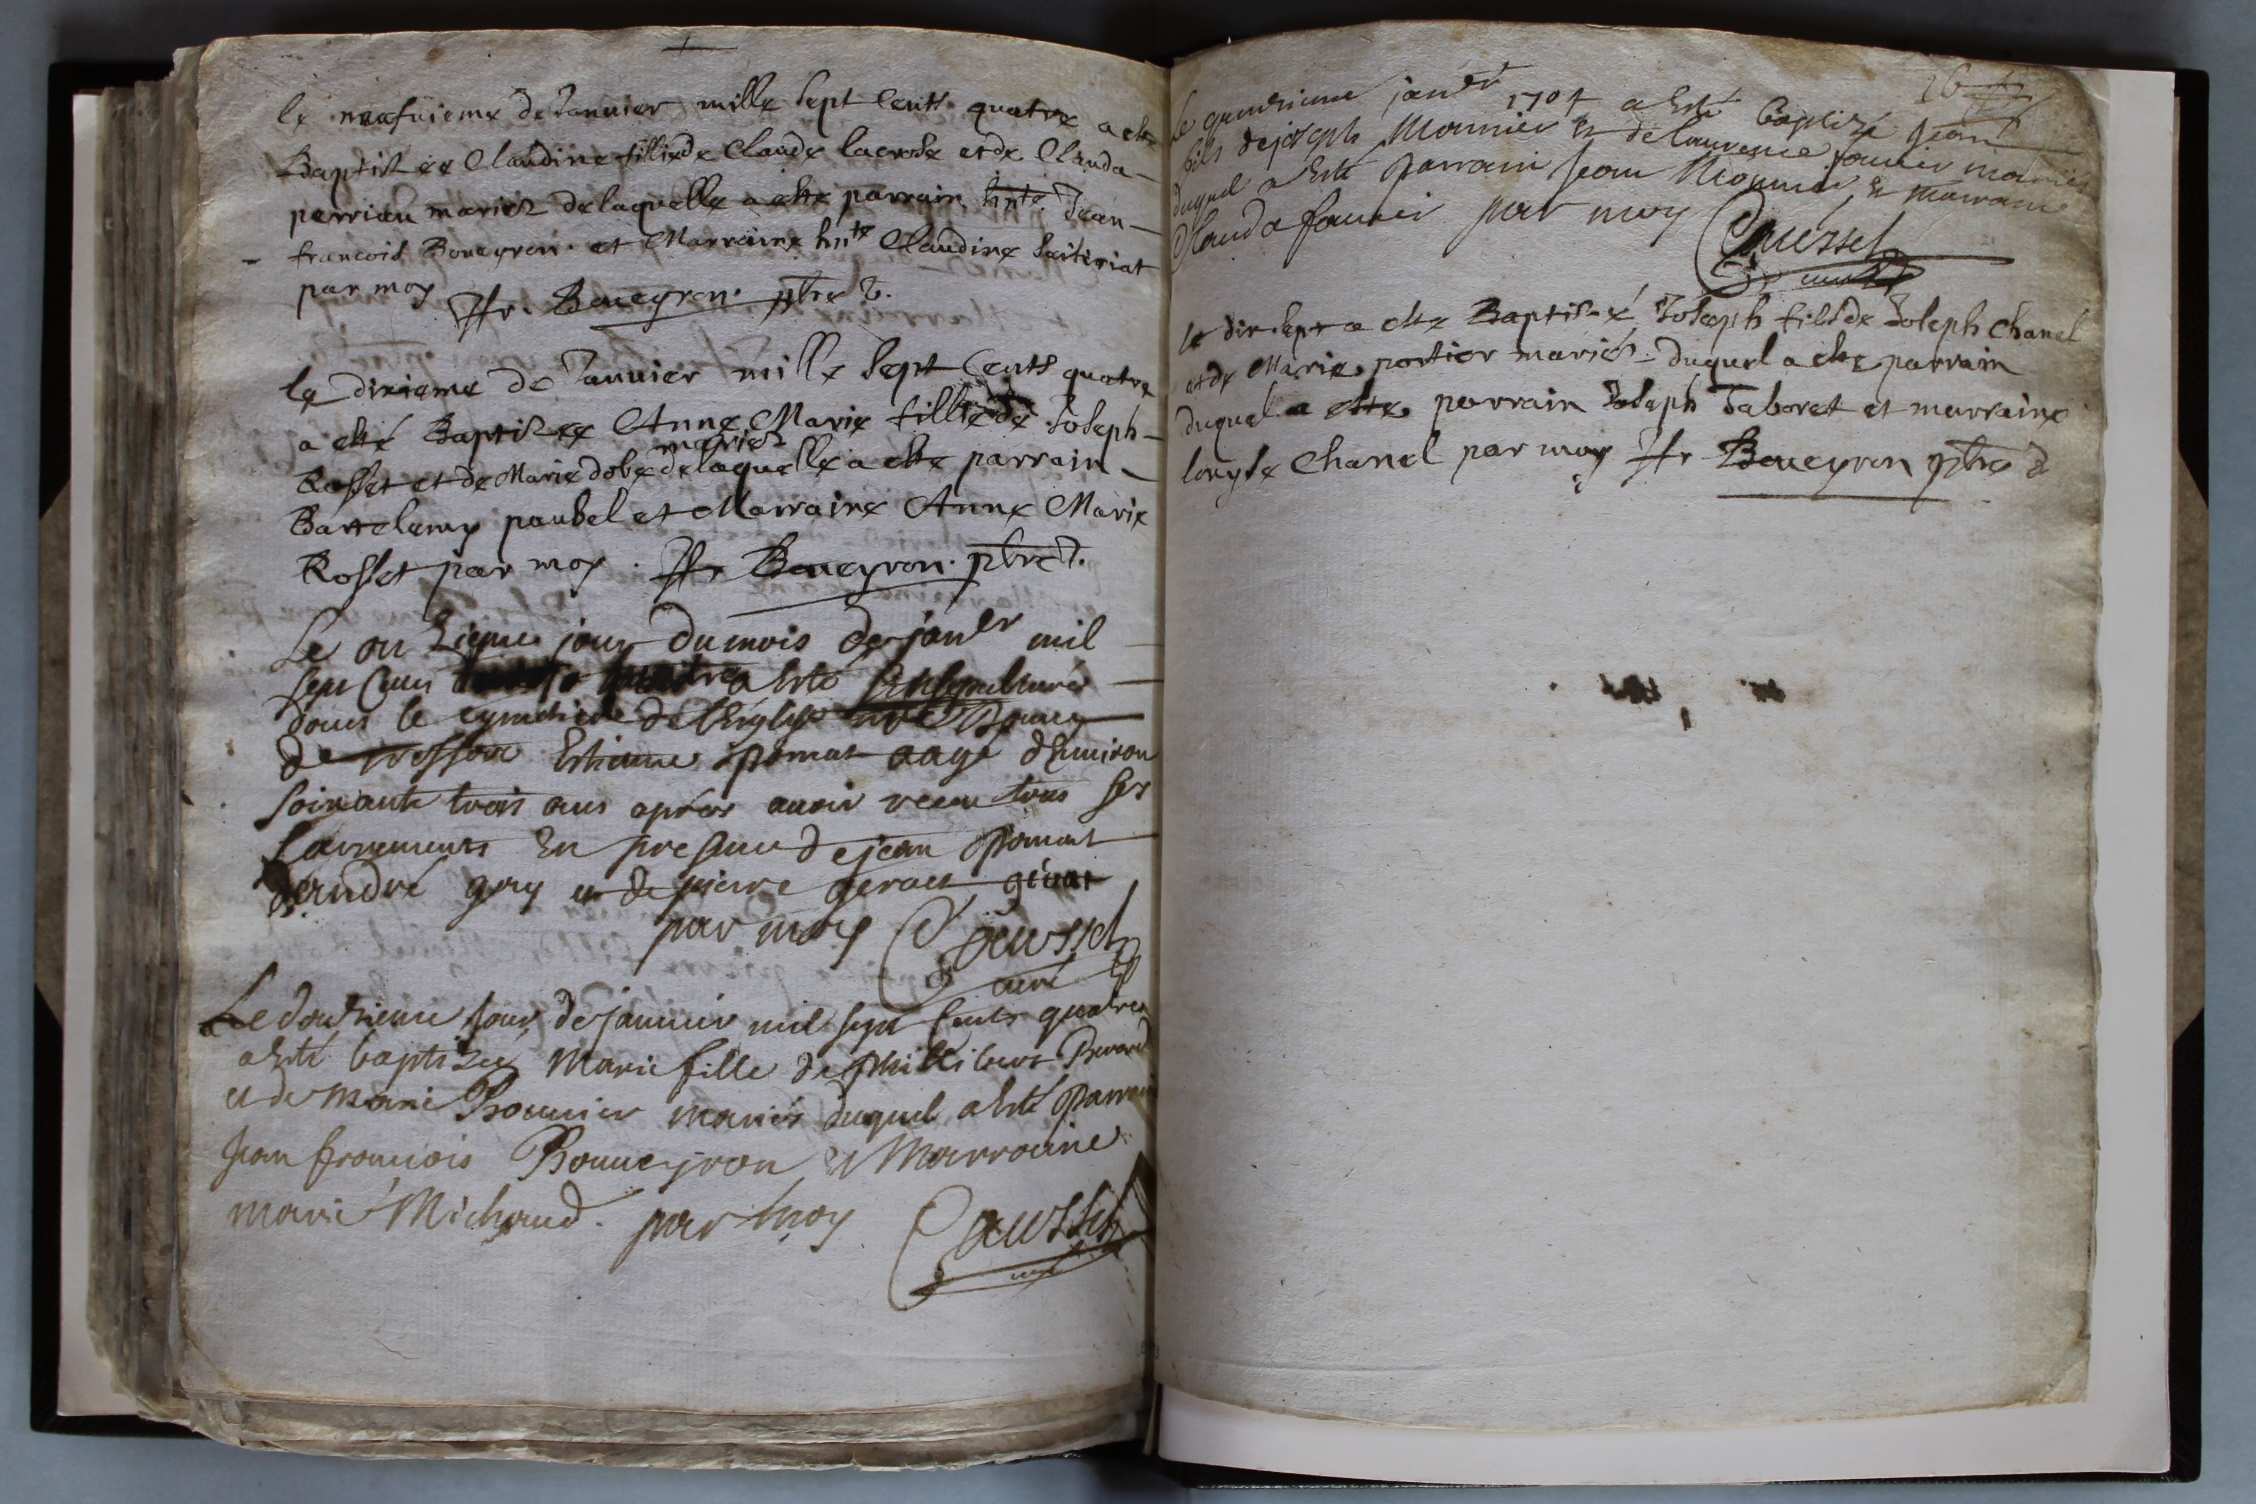 le neufuieme de Januier mille sept Cents quatre a este
Baptisée Claudine fillie de Claude lacrose et de Clauda
perriau mariez de laquelle a este parrain hnte Jean
francois Boueyron et Marraine hnte Claudine
par moy Boueyron pbre
le dixieme de Januier mille sept Cents quatre
a esté Baptisée Anne Marie fillie de Joseph
mariez
Rosset et de Marie dobe de laquelle a este parrain
Bartelemy paubel et Marraine Anne Marie
Rosset par moy Boueyron pbre
Le onzieme jour du mois de janer mil
sept Cens a esté
dans le cymetiere de l'Eglise
de Estienne pomat aagé d'Enuiron
soixante trois ans apres auoir receu tous ses
sacrements En presence de jean pomat
d'andré gery et de pierre
par moy Caussel
curé
Le douzieme jour de januier mil sept Cents quatre
a esté baptizée Marie fille de philibert
et de Marie Bonnier mariés duquel a esté parrain
Jean francois Boueyron et Marraine
marie Michaud par moy Caussel
curé
16
Le quinzieme janer 1704 a esté baptizé Jean
fils de joseph Monnier et de laurence fauier mariés
duquel a esté parrain Jean Monnier et marraine
Clauda fauier par moy Caussel
curé
le dix sept a este Baptisé Joseph fils de Joseph Chanel
et de Marie portier mariés duquel a este parrain
duquel a este parrain Joseph Taboret et marraine
Chanel par moy Boueyron pbre